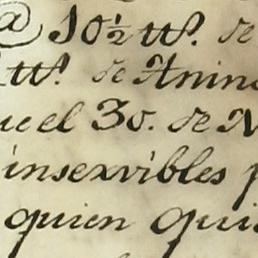 @ 10½ tt.s de
tt.s de Anim
uel 30. de N
insexvibles p
quien qui